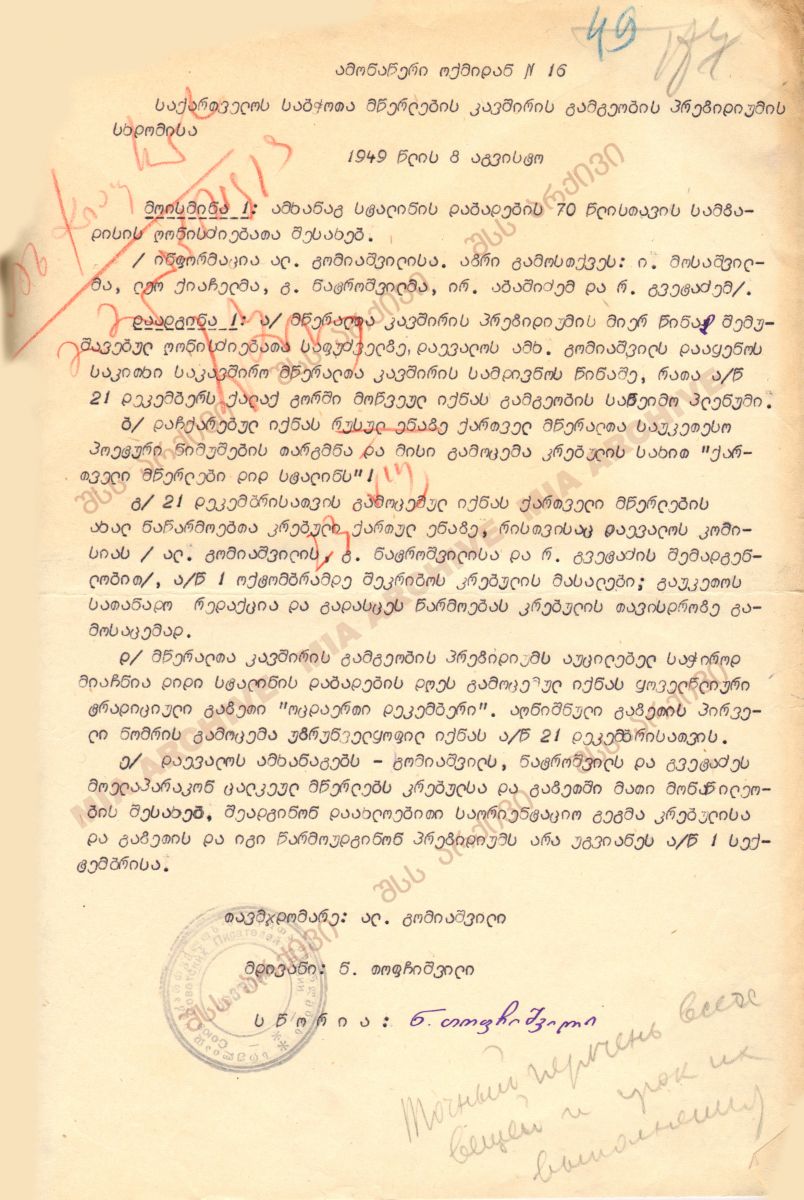 49
ამონაწერი ოქმიდან N 16
საქართველოს საბჭოთა მწერლების კავშირის გამგეობის პრეზიდიუმის
სხდომისა
1949 წლის 8 აგვისტო
მოისმინა 1: ამხანაგ სტალინის დაბადების 70 წლისთავის სამზა-
დისის ღონისძიებათა შესახებ.
/ ინფორმაცია ალ. გომიაშვილისა. აზრი გამოსთქვეს: ი. მოსაშვილ-
მა, ლეო ქიაჩელმა, გ. ნატროშვილმა, ირ. აბაშიძემ და რ. გვეტაძემ/.
დაადგინა 1: ა/ მწერალთა კავშირის პრეზიდიუმის მიერ წინად შემუ-
შავებულ ღონისძიებათა საფუძველზე, დაევალოს ამხ. გომიაშვილს დააყენოს
საკითხი საკავშირო მწერალთა კავშირის სამდივნოს წინაშე, რათა ა/წ
21 დეკემბერს ქალაქ გორში მოწვეულ იქნას გამგეობის საზეიმო პლენუმი.
ბ/ დაჩქარებულ იქნას რუსულ ენაზე ქართველ მწერალთა საუკეთესო
პოეტური ნიმუშების თარგმნა და მისი გამოცემა კრებულის სახით "ქარ-
თველი მწერლები დიდ სტალინს"!
გ/ 21 დეკემბრისათვის გამოცემულ იქნას ქართველი მწერლების
ახალ ნაწარმოებთა კრებული ქართულ ენაზე, რისთვისაც დაევალოს კომი-
სიას / ალ. გომიაშვილის, გ. ნატროშვილისა და რ. გვეტაძის შემადგენ-
ლობით/, ა/წ 1 ოქტომბრამდე შეკრიბოს კრებულის მასალები; გაუკეთოს
სათანადო რედაქცია და გადასცეს წარმოებას კრებულის თავისდროზე გა-
მოსაცემად.
დ/ მწერალთა კავშირის გამგეობის პრეზიდიუმს აუცილებელ საჭიროდ
მიაჩნია დიდი სტალინის დაბადების დღეს გამოცემულ იქნას ყოველწლიური
ტრადიციული გაზეთი "ოცდაერთი დეკემბერი". აღნიშნული გაზეთის პირვე-
ლი ნომრის გამოცემა უზრუნველყოფილ იქნას ა/წ 21 დეკემბრისათვის.
ე/ დაევალოს ამხანაგებს - გომიაშვილს, ნატროშვილს და გვეტაძეს
მოელაპარაკონ ცალკეულ მწერლებს კრებულსა და გაზეთში მათი მონაწილეო-
ბის შესახებ, შეადგინონ დაახლოებითი საორიენტაციო გეგმა კრებულისა
და გაზეთის და იგი წარმოუდგინონ პრეზიდიუმს არა უგვიანეს ა/წ 1 სექ-
ტემბრისა.
თავმჯდომარე: ალ. გომიაშვილი
მდივანი: ნ. თოფჩიშვილი
სწორია: ნ. თოფჩიშვილი
Точный перечень всех
вещей и срок их
выполнения
შსს არქივი MIA ARCHIVE